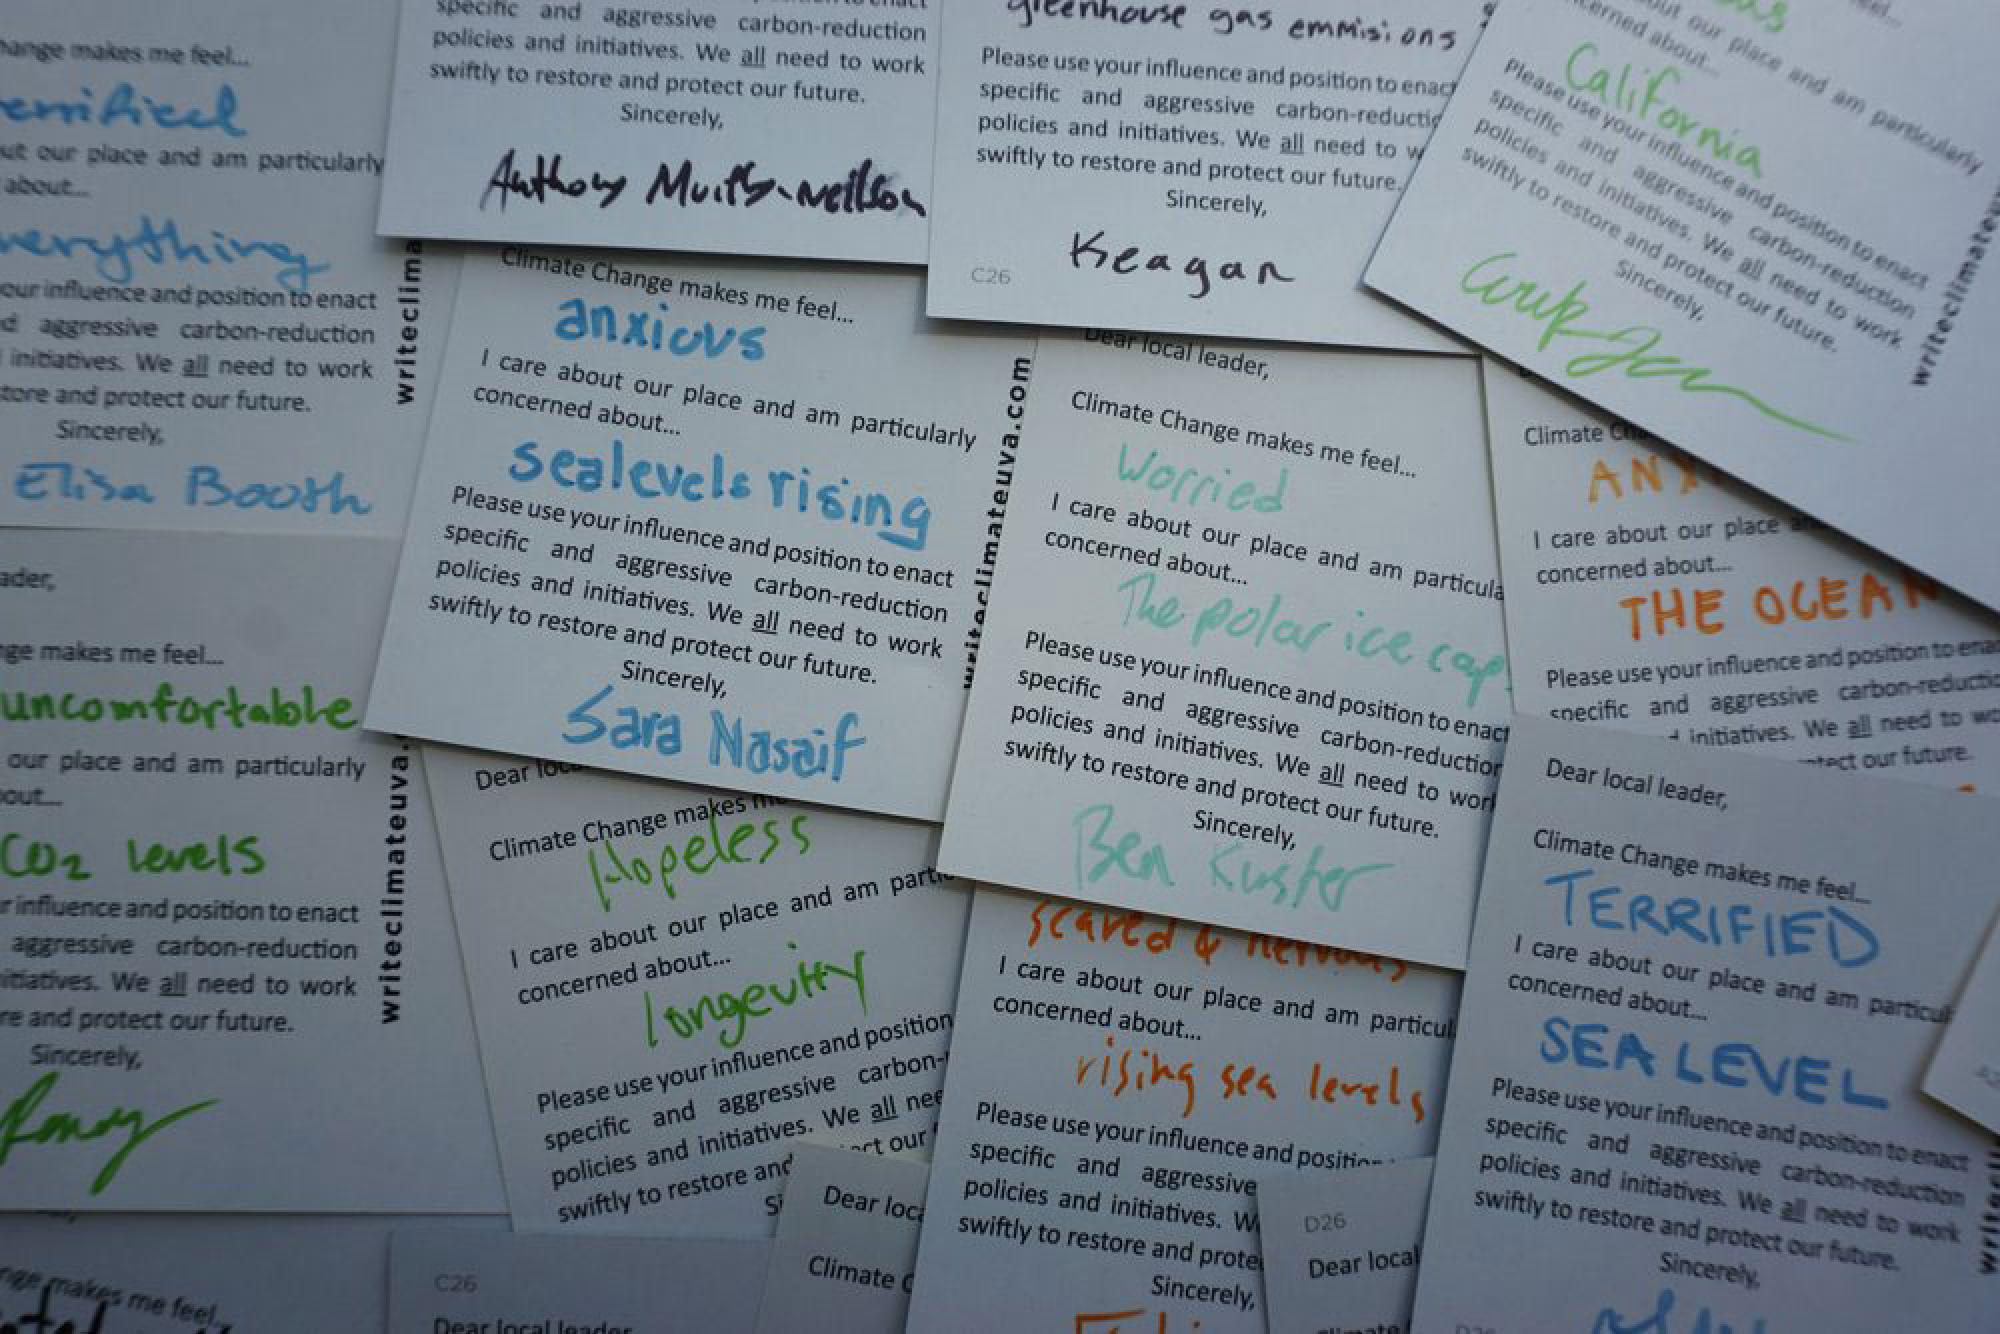 hange makes me feel...
out our place and am particularly
about...
your influence and position to enact
aggressive carbon-reduction
initiatives. We all need to work
tore and protect our future.
Sincerely,
Elisa Booth
writeclima
specific and aggressive carbon-reduction
policies and initiatives. We all need to work
swiftly to restore and protect our future.
Sincerely,
Anthony
greenhouse gas emmisions
Please use your influence and position to enact
specific and aggressive carbon-reductio
policies and initiatives. We all need to w
swiftly to restore and protect our future.
Sincerely,
Keagan
C26
out our place and am particularly
cerned about...
California
Please use your influence and position to enact
specific and aggressive carbon-reduction
policies and initiatives. We all need to work
swiftly to restore and protect our future.
Sincerely,
writeclimateu
Climate Change makes me feel...
anxious
I care about our place and am particularly
concerned about...
sealevels rising
Please use your influence and position to enact
specific and aggressive carbon-reduction
policies and initiatives. We all need to work
swiftly to restore and protect our future.
Sincerely,
Sara Nasaif
writeclimateuva.com
Dear local leader,
Climate Change makes me feel...
Worried
I care about our place and am particula
concerned about...
The polar ice cap
Please use your influence and position to enact
specific and aggressive carbon-reduction
policies and initiatives. We all need to work
swiftly to restore and protect our future.
Sincerely,
Ben Kuster
Climate Ch
ANX
I care about our place
concerned about...
THE OCEAN
Please use your influence and position to enac
specific and aggressive carbon-reductio
initiatives. We all need to wo
tect our future.
ader,
ge makes me feel...
uncomfortable
our place and am particularly
out...
CO2 levels
r influence and position to enact
aggressive carbon-reduction
itiatives. We all need to work
re and protect our future.
Sincerely,
writeclimateuva.
Dear loc
Climate Change makes me
Hopeless
I care about our place and am partic
concerned about...
longevity
Please use your influence and position
specific and aggressive carbon-
policies and initiatives. We all nee
swiftly to restore and ect our
Si
scared & nervous
I care about our place and am particul
concerned about...
rising sea levels
Please use your influence and position
specific and aggressive
policies and initiatives. W
swiftly to restore and prote
Sincerely,
Dear local leader,
Climate Change makes me feel...
TERRIFIED
I care about our place and am particul
concerned about...
SEA LEVEL
Please use your influence and position to enact
specific and aggressive carbon-reduction
policies and initiatives. We all need to work
swiftly to restore and protect our future.
Sincerely,
nge makes me feel...
C26
Dear local leader
Dear loca
Climate C
D26
Dear local
climate